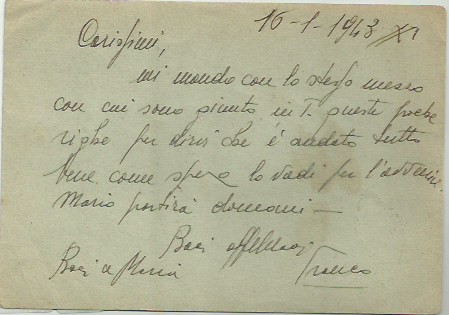 16-1-1943 XXI
Carissimi,
mando con lo stesso mezzo
con cui sono giunto in queste poche
righe per dirvi che è andato tutto
bene come spero lo vadi per l'avvenire.
Mario partirà domani —
Baci affettuosi
Baci a Maria Franco